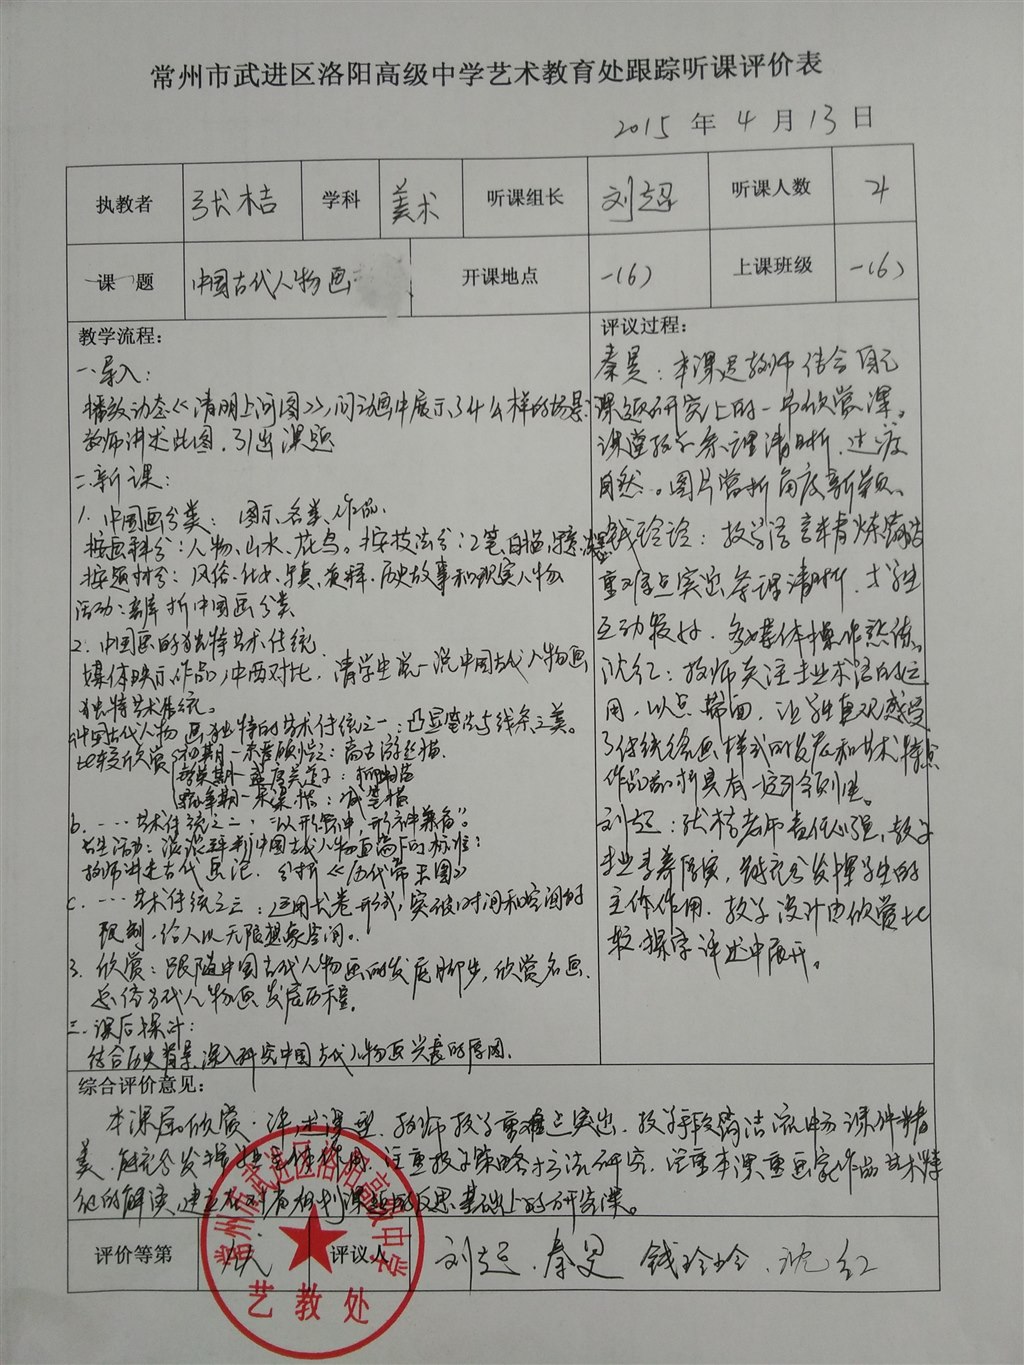 常州市武进区洛阳高级中学艺术教育处跟踪听课评价表
2015 年 4 月 13 日
执教者 张桔 学科 美术 听课组长 刘超 听课人数 4
课 题 中国古代人物画 开课地点 一(6) 上课班级 一(6)
教学流程：
一.导入：
播放动态《清明上河图》,问动画中展示了什么样的场景
教师讲述此图.引出课题
二.新课：
1.中国画分类： 图示、名类、作品.
按画科分：人物、山水、花鸟。按技法分：工笔、白描、写意、
按题材分：风俗、仕女、写真、道释、历史故事和现实人物
活动： 析中国画分类
2.中国画的独特艺术传统
媒体映示作品,中西对比.请学生说一说中国古代人物画
独特艺术传统。
中国古代人物画独特的艺术传统之一：凸显笔法与线条之美。
比较欣赏 初期—东晋顾恺之：高古游丝描
盛唐吴道子：
宋梁楷：减笔描
b. ····艺术传统之二："以形写神,形神兼备"。
师生活动：谈谈评判中国古代人物画高下的标准：
教师讲述古代画论.分析《历代帝王图》
c. ····艺术传统之三：运用长卷形式,突破时间和空间的
限制.给人以无限想象空间。
3.欣赏：跟随中国古代人物画的发展脚步,欣赏名画.
总结古代人物画发展历程.
三.课后探讨：
结合历史背景,深入研究中国古代人物画兴衰的原因.
评议过程：
秦昊：本课是教师结合自己
课题研究上的一节欣赏课。
课堂教学条理清晰.过渡
自然。图片赏析角度新颖。
钱玲玲：教学语言精炼简洁
重难点突出条理清晰.与学生
互动较好.多媒体操作熟练。
沈红：教师关注专业术语的运
用.以点带面.让学生直观感受
了传统绘画样式的发展和艺术特点
作品剖析具有一定引领性。
刘超：张桔老师责任心强,教学
专业素养厚实,能充分发挥学生的
主体作用.教学设计由欣赏比
较.探究评述中展开。
综合评价意见：
本课属欣赏·评述课型.教师教学重难点突出.教学手段简洁流畅课件精
美.能充分发挥学生主体作用.注重教学策略与方法研究.注重本课重画家作品艺术特
征的解读,建立在对有机制课题的反思基础上的研究课。
评价等第 优 评议人 刘超.秦昊 钱玲玲.沈红
常州市武进区洛阳高级中学
艺教处